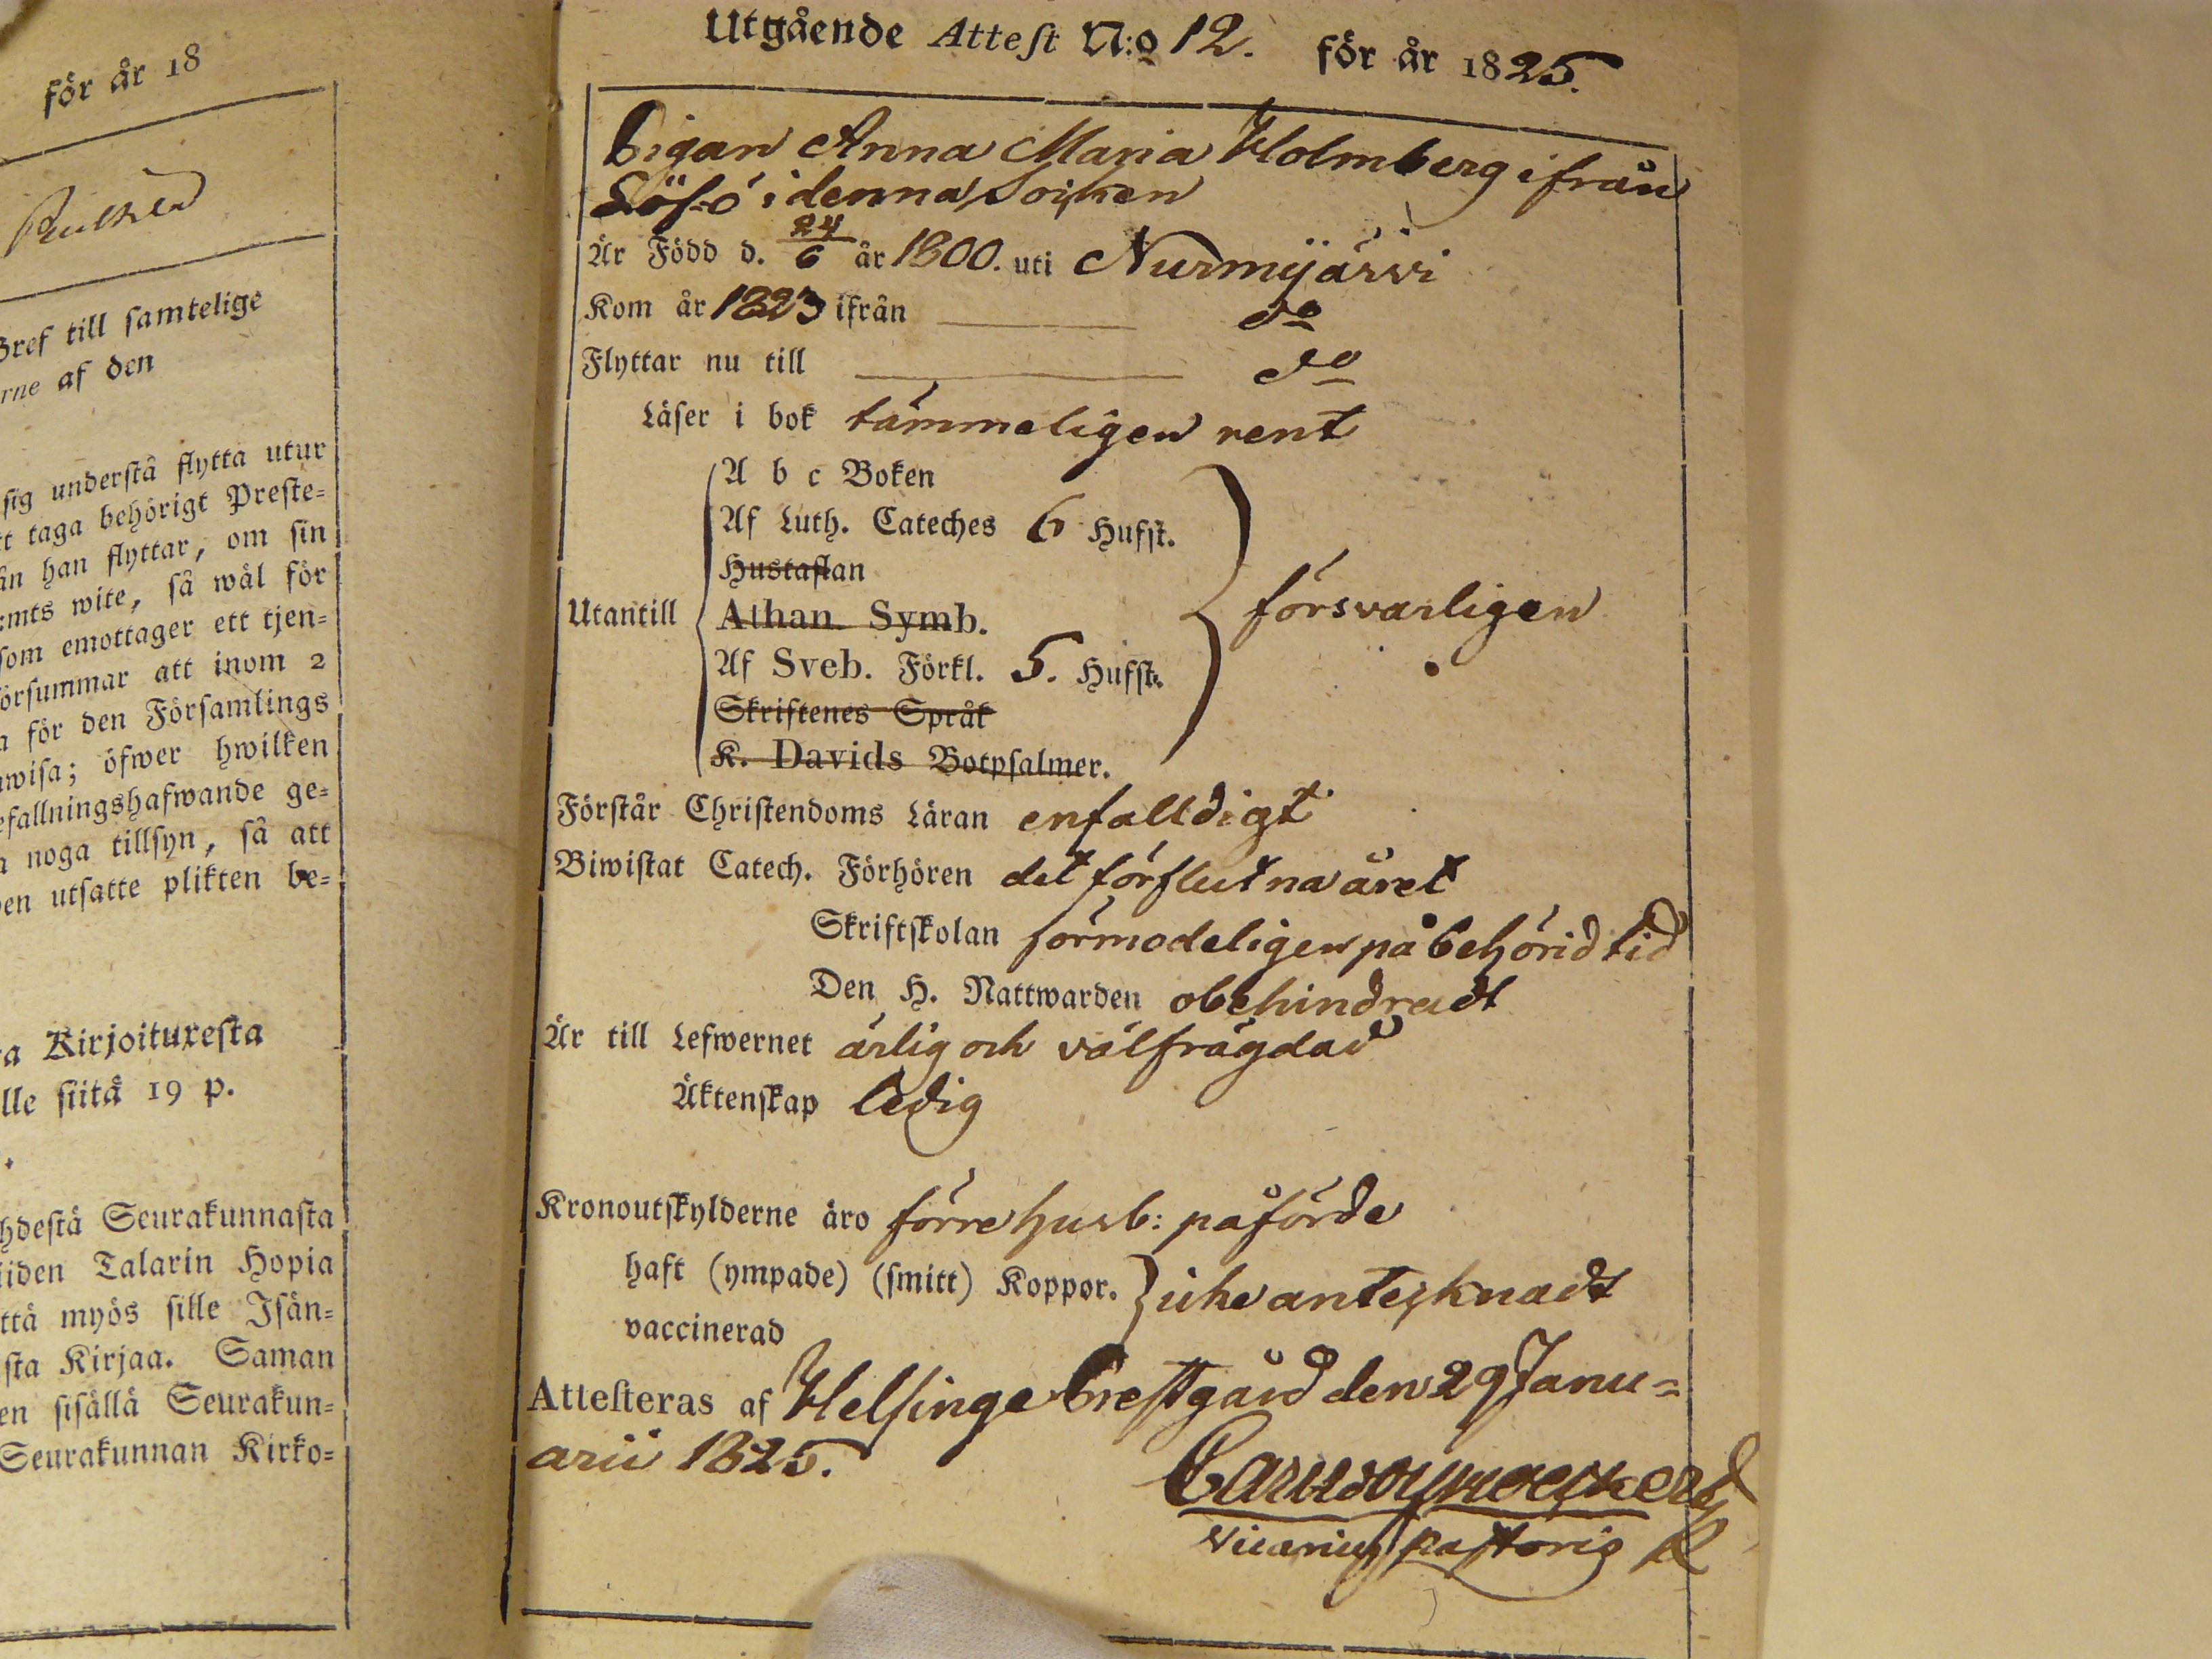 för år 18
Bref till samtelige
rne af den
sig understå flytta utur
tt taga behörigt Preste=
ån han flyttar, om sin
:mts wite, så wäl för
som emottager ett tjen=
örsummar att inom 2
a för den Församlings
wisa; öfwer hwilken
efallningshafwande ge=
a noga tillsyn, så att
en utsatte plikten be=
a Kirjoituxesta
lle siitä 19 p.
hdestä Seurakunnasta
iiden Talarin Hopia
ttä myös sille Isän=
sta Kirjaa. Saman
en sisällä Seurakun=
Seurakunnan Kirko=
Utgående Attest N:o 12. för år 1825.
Pigan Anna Maria Holmberg ifrån
Löfö i denna Soiken
Är Född d. 24/6 år 1800. uti Nurmijärvi
Kom år 1823 ifrån do
Flyttar nu till do
Läser i bok tämmeligen rent
A b c Boken
Af Luth. Cateches 6 Hufst.
Hustaflan
Utantill Athan. Symb. försvarligen
Af Sveb. Förkl. 5. Hufst.
Skriftenes Språk
K. Davids Botpsalmer.
Förstår Christendoms Läran enfalldigt
Biwistat Catech. Förhören det förflutna året
Skriftskolan förmodeligen på behörid tid
Den H. Nattwarden obehindradt
Är till Lefwernet ärlig och välfrägdad
Äktenskap ledig
Kronoutskylderne äro förre husb: påförde
haft (ympade) (smitt) Koppor. icke antecknadt
vaccinerad
Attesteras af Helsinge Prestgård den 29 Janu=
arii 1825.
Vicarius pastoris